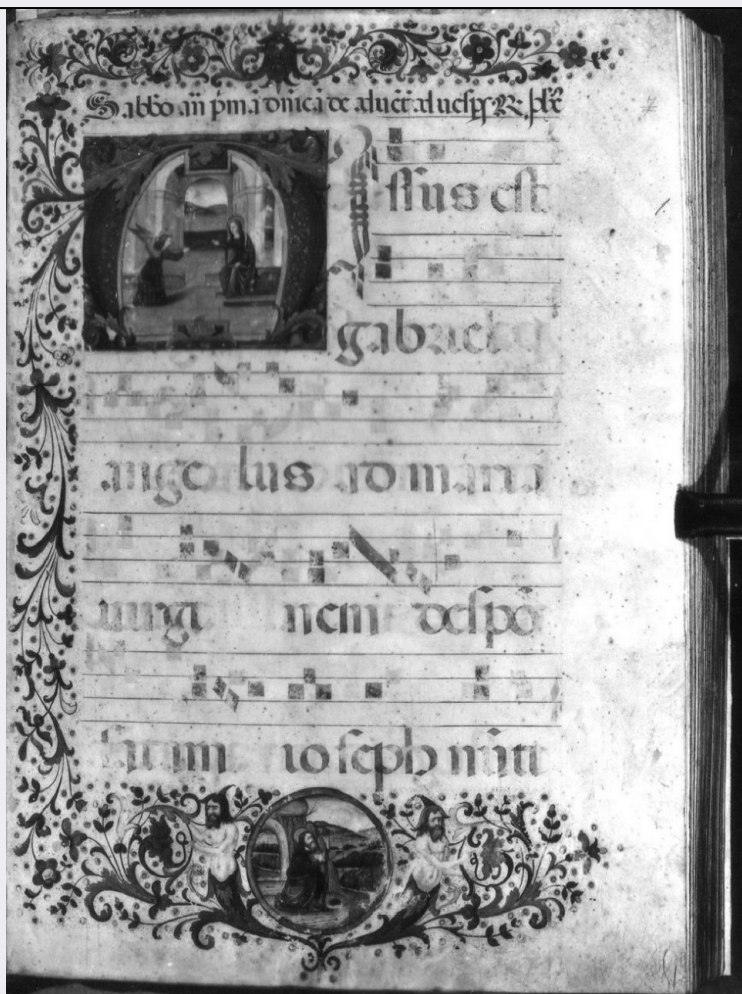 Sabbo añ pma dnica de aduet ad uesp͛s R̃. pl̃r
Issus est
gabriel
angelus ad maria
uirgi nem despõ
satam ioseph nũti